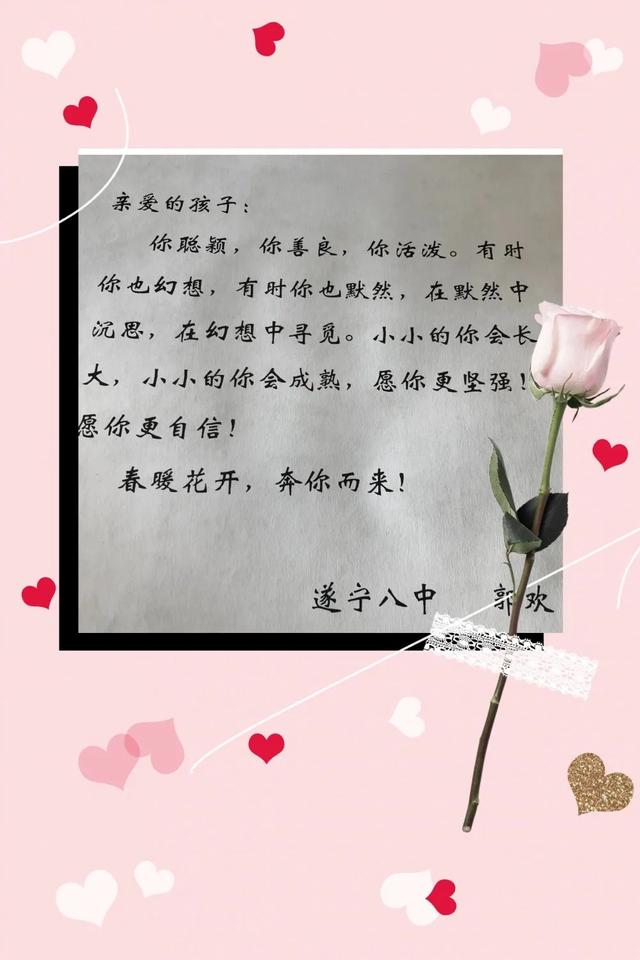 亲爱的孩子：
你聪颖，你善良，你活泼。有时
你也幻想，有时你也默然，在默然中
沉思，在幻想中寻觅。小小的你会长
大，小小的你会成熟，愿你更坚强！
愿你更自信！
春暖花开，奔你而来！
遂宁八中 郭欢